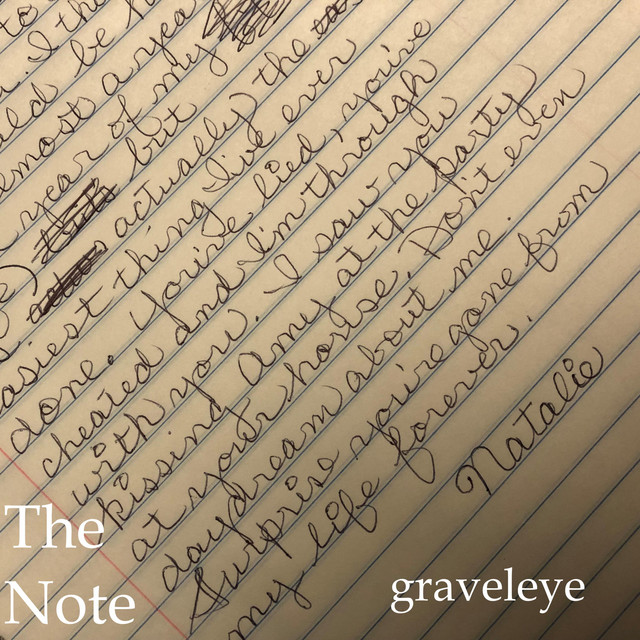 to
. I the
uld be
lmost a yea
year of my
but
actually the
easiest thing I've ever
done. You've lied, you've
cheated and I'm through
with you. I saw you
kissing Amy at the party
at your house. Don't even
daydream about me.
Surprise you're gone from
my life forever.
Natalie
The
Note
graveleye